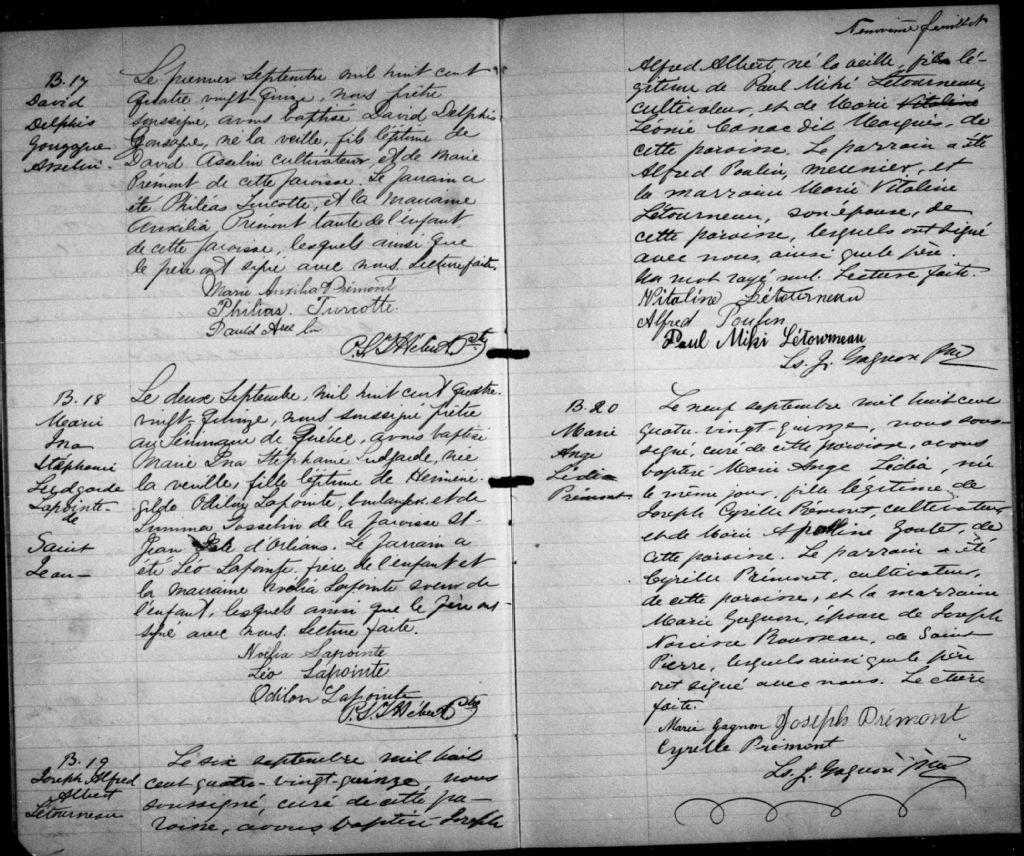 B.17
David
Delphis
Gonzague
Asselin.
Le premier Septembre mil huit cent
quatre vingt quinze, nous prêtre
soussigné, avons baptisé David Delphis
Gonzague, né la veille, fils légitime de
David Asselin cultivateur, et de Marie
Prémont de cette paroisse. Le parrain a
été Philéas Turcotte, et la marraine
Auxilia Prémont tante de l'enfant,
de cette paroisse, lesquels ainsi que
le père ont signé avec nous. Lecture faite.
Marie Auxilia Prémont
Philias. Turcotte.
David Asselin
Hébert Ptre
B.18
Marie
Ina
Stéphanie
Ludgarde
Lapointe-
de
Saint
Jean-
Le deux Septembre, mil huit cent quatre-
vingt quinze, nous soussigné prêtre
au Séminaire de Québec, avons baptisé
Marie Ina Stéphanie Ludgarde, née
la veille, fille légitime de Herméné-
gilde Odilon Lapointe, boulanger, et de
Josselin de la paroisse St-
Jean Isle d'Orléans. Le parrain a
été Léo Lapointe, frère de l'enfant et
la marraine Noélia Lapointe soeur de
l'enfant, lesquels ainsi que le père ont
signé avec nous. Lecture faite.
Noélia Lapointe
Léo Lapointe
Odilon Lapointe
Hébert Ptre
B.19
Joseph Alfred
Albert
Létourneau
Le six septembre mil huit
cent quatre-vingt-quinze nous
soussigné, curé de cette pa-
roisse, avons baptisé Joseph
Neuvième feuillet
Alfred Albert né la veille, fils lé-
gitime de Paul Miki Létourneau,
cultivateur, et de Marie Vitaline
Léonie Canac dit Marquis, de
cette paroisse. Le parrain a été
Alfred Poulin, meunier, et
la marraine Marie Vitaline
Létourneau, son épouse, de
cette paroisse, lesquels ont signé
avec nous ainsi que le père.
Un mot rayé nul. Lecture faite.
Vitaline Létourneau
Alfred Poulin
Paul Miki Létourneau
Ls. J. Gagnon Ptre
B.20
Marie
Ange
Lédia
Prémont
Le neuf septembre mil huit cent
quatre-vingt-quinze, nous sous-
signé, curé de cette paroisse, avons
baptisé Marie Ange Lédia, née
le même jour, fille légitime de
Joseph Cyrille Prémont, cultivateur,
et de Marie Apolline Goulet, de
cette paroisse. Le parrain a été
Cyrille Prémont, cultivateur,
de cette paroisse, et la marraine
Marie Gagnon, épouse de Joseph
Narcisse Rousseau, de Saint
Pierre, lesquels ainsi que le père
ont signé avec nous. Lecture
faite.
Marie Gagnon Joseph Prémont
Cyrille Prémont
Ls. J. Gagnon Ptre